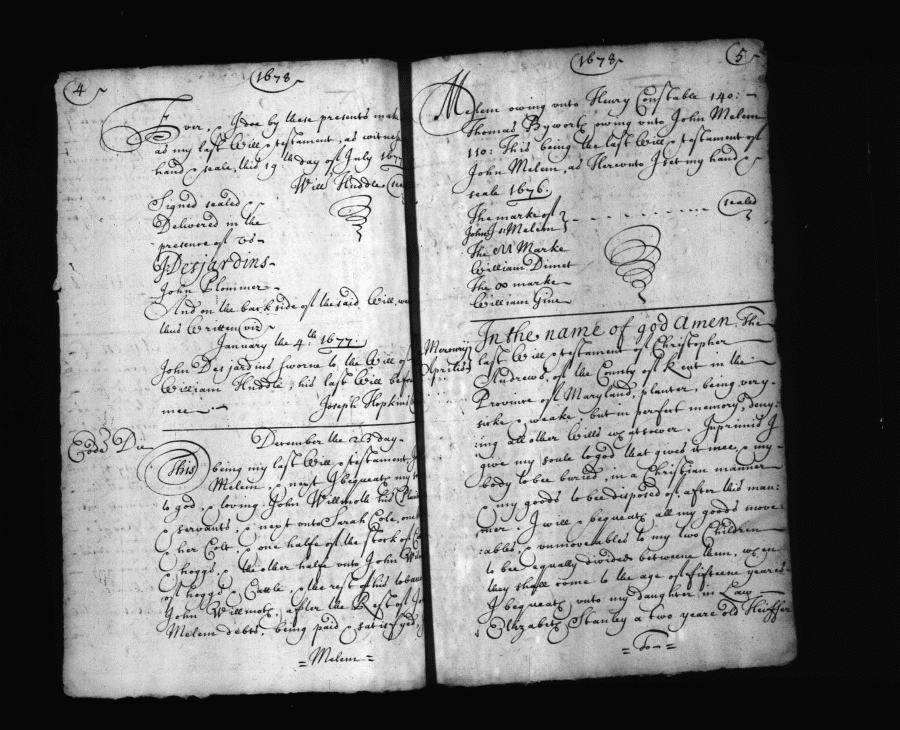 4
1678
Ever, I doe by these presents make
as my last Will & testament, as witness
hand & seale, this 19th day of July 167
Will Huddle
Signed sealed &
Delivered in the
presence of us
J Desjardins
John Plommer
And on the back side of the said Will, was
thus Written viz
January the 4th 1677
John Desjardins sworne to the Will of
William Huddle, his last Will before
mee
Joseph Hopkins
Eod Die
December the 23 day
This being my last Will & testament, I
Melem, & next I bequeath my
to god, & loving John Willmott his
servants, & next unto Sarah Cole, one
& her Colt & one halfe of the stock of
hoggs, & the other halfe unto John
of hoggs & Cattle, & the rest of his tobacco
John Willmott, after the Rest of
Melem debts, being paid & satisfyed,
= Melem =
1678
5
Melem owing unto Henry Constable 140:
Thomas Byworth, owing unto John Melem
110: This being the last Will & testament of
John Melem, as Hereunto I set my hand &
seale 1676.
The marke of
John Melem
sealed
The M Marke
William Dimet
The oo marke
William Gine
In the name of god Amen. The
Mercurij
Aprilis
last Will & testament of Christopher
Andrews, of the County of Kent in the
Province of Maryland, planter, being very
sicke & weake but in perfect memory, deny-
ing all other Wills whatsoever. Inprimis I
give my soule to god that gives it mee, & my
body to bee buried, in a Christian manner
& my goods to bee disposed of after this man:
ner. I will & bequeath all my goods move
:ables, & unmoveables to my two Children
to bee equally divided betweene them, when
they shall come to the age of fifteene yeares
I bequeath unto my daughter in Law
Elizabeth Stanley a two yeare old Heiffer
= To =